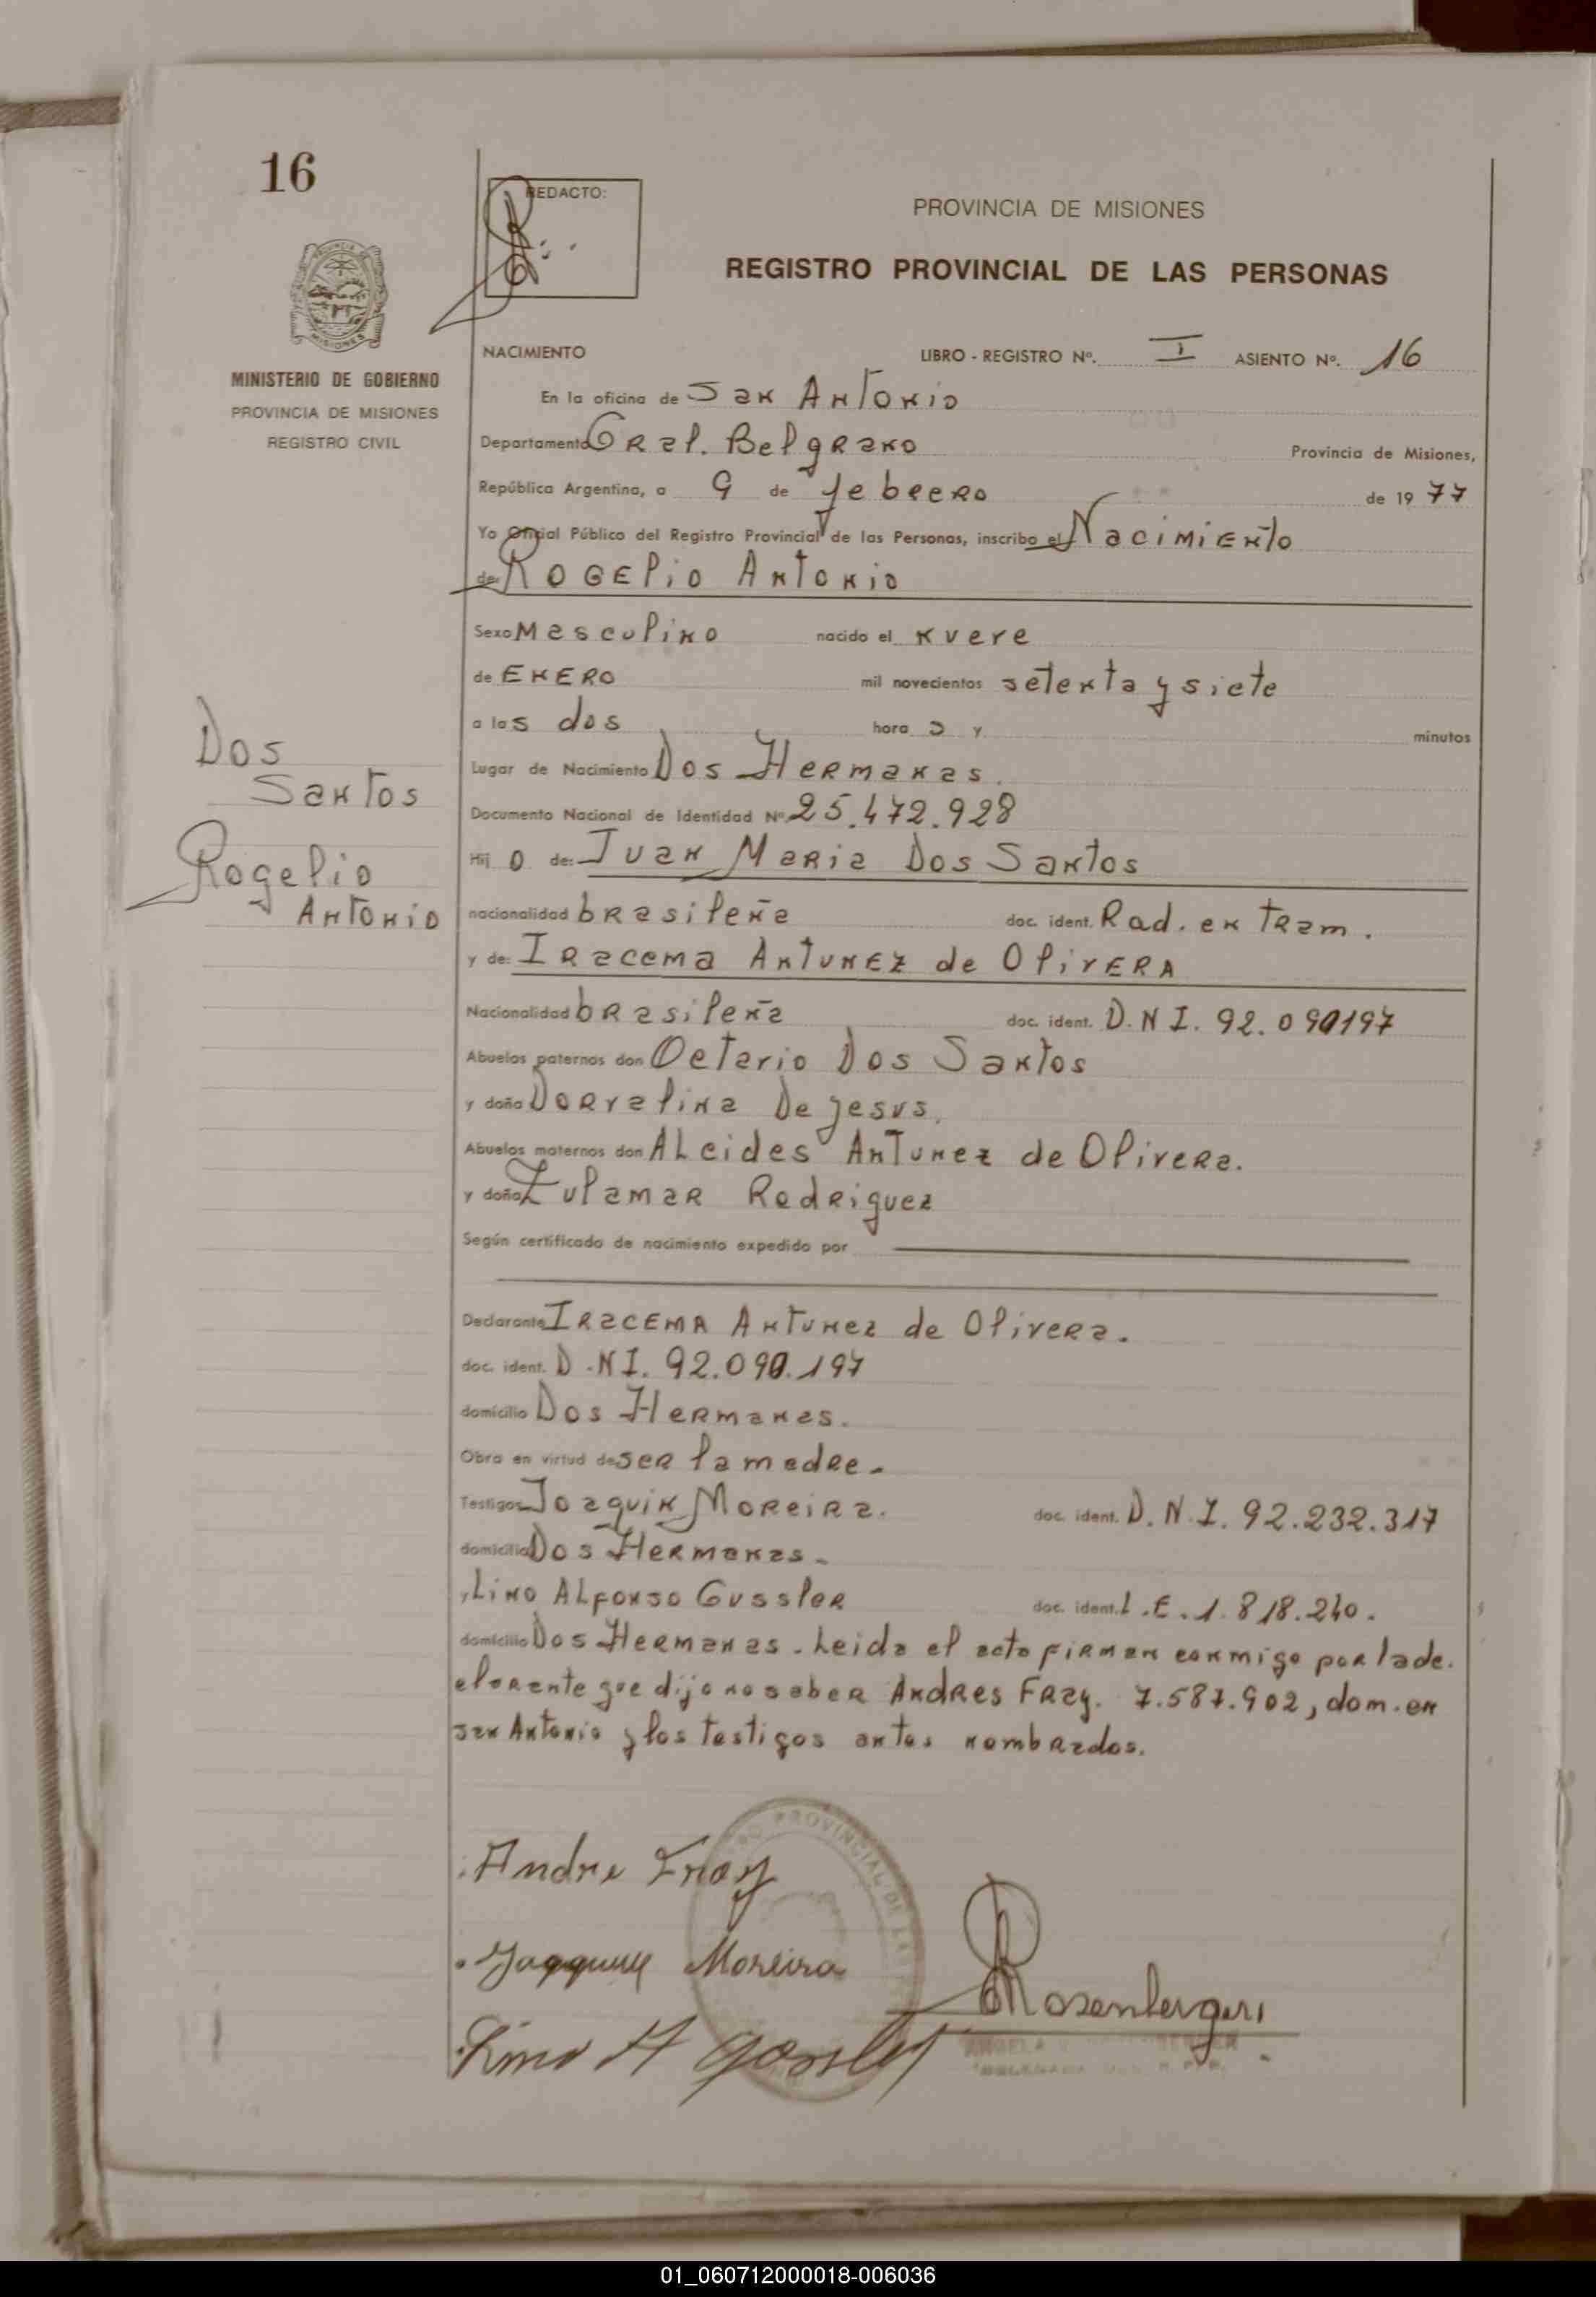 16
REDACTO:
PROVINCIA DE MISIONES
REGISTRO PROVINCIAL DE LAS PERSONAS
MISIONES
MINISTERIO DE GOBIERNO
PROVINCIA DE MISIONES
REGISTRO CIVIL
NACIMIENTO LIBRO - REGISTRO Nº. I ASIENTO Nº. 16
En la oficina de San Antonio
Departamento Gral. Belgrano Provincia de Misiones,
República Argentina, a 9 de febrero de 1977
Yo Oficial Público del Registro Provincial de las Personas, inscribo el Nacimiento
de: Rogelio Antonio
Sexo Masculino nacido el nueve
de Enero mil novecientos setenta y siete
a las dos horas y minutos
Lugar de Nacimiento Dos Hermanas.
Documento Nacional de Identidad Nº 25.472.928
Hijo de: Juan Maria Dos Santos
nacionalidad brasileña doc. ident. Rad. en tram.
y de: Iracema Antunez de Olivera
Nacionalidad brasileña doc. ident. D.N.I. 92.090197
Abuelos paternos don Octavio Dos Santos
y doña Dorvalina De Jesus.
Abuelos maternos don Alcides Antunez de Olivera.
y doña Zulamar Rodriguez
Según certificado de nacimiento expedido por
Declarante Iracema Antunez de Olivera.
doc. ident. D.N.I. 92.090.197
domicilio Dos Hermanas.
Obra en virtud de ser la madre.
Testigos Joaquin Moreira. doc. ident. D.N.I. 92.232.317
domicilio Dos Hermanas.
y Lino Alfonso Gussler doc. ident. L.E. 1.818.240.
domicilio Dos Hermanas. Leida el acta firman conmigo por la de.
clarante que dijo no saber Andres Fray. 7.587.902, dom. en
san Antonio y los testigos antes nombrados.
Dos
Santos
Rogelio
Antonio
Andre Fray
Moreira
Lino A
Rosenberger
PROVINCIAL DE LA
ANGELA
01_060712000018-006036